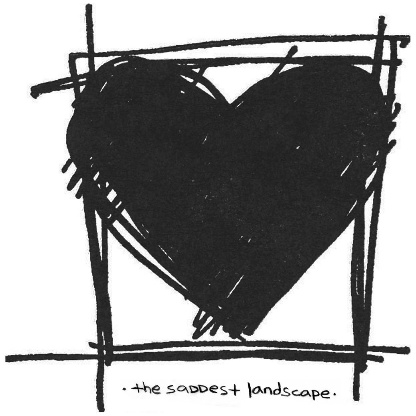 · the saddest landscape ·